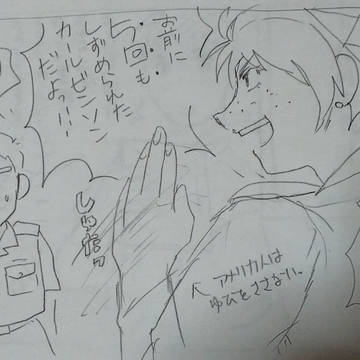 お前に
5回も
しずめられた
カールビンソン
だよっ!!!
←アメリカ人は
ゆびをささない。